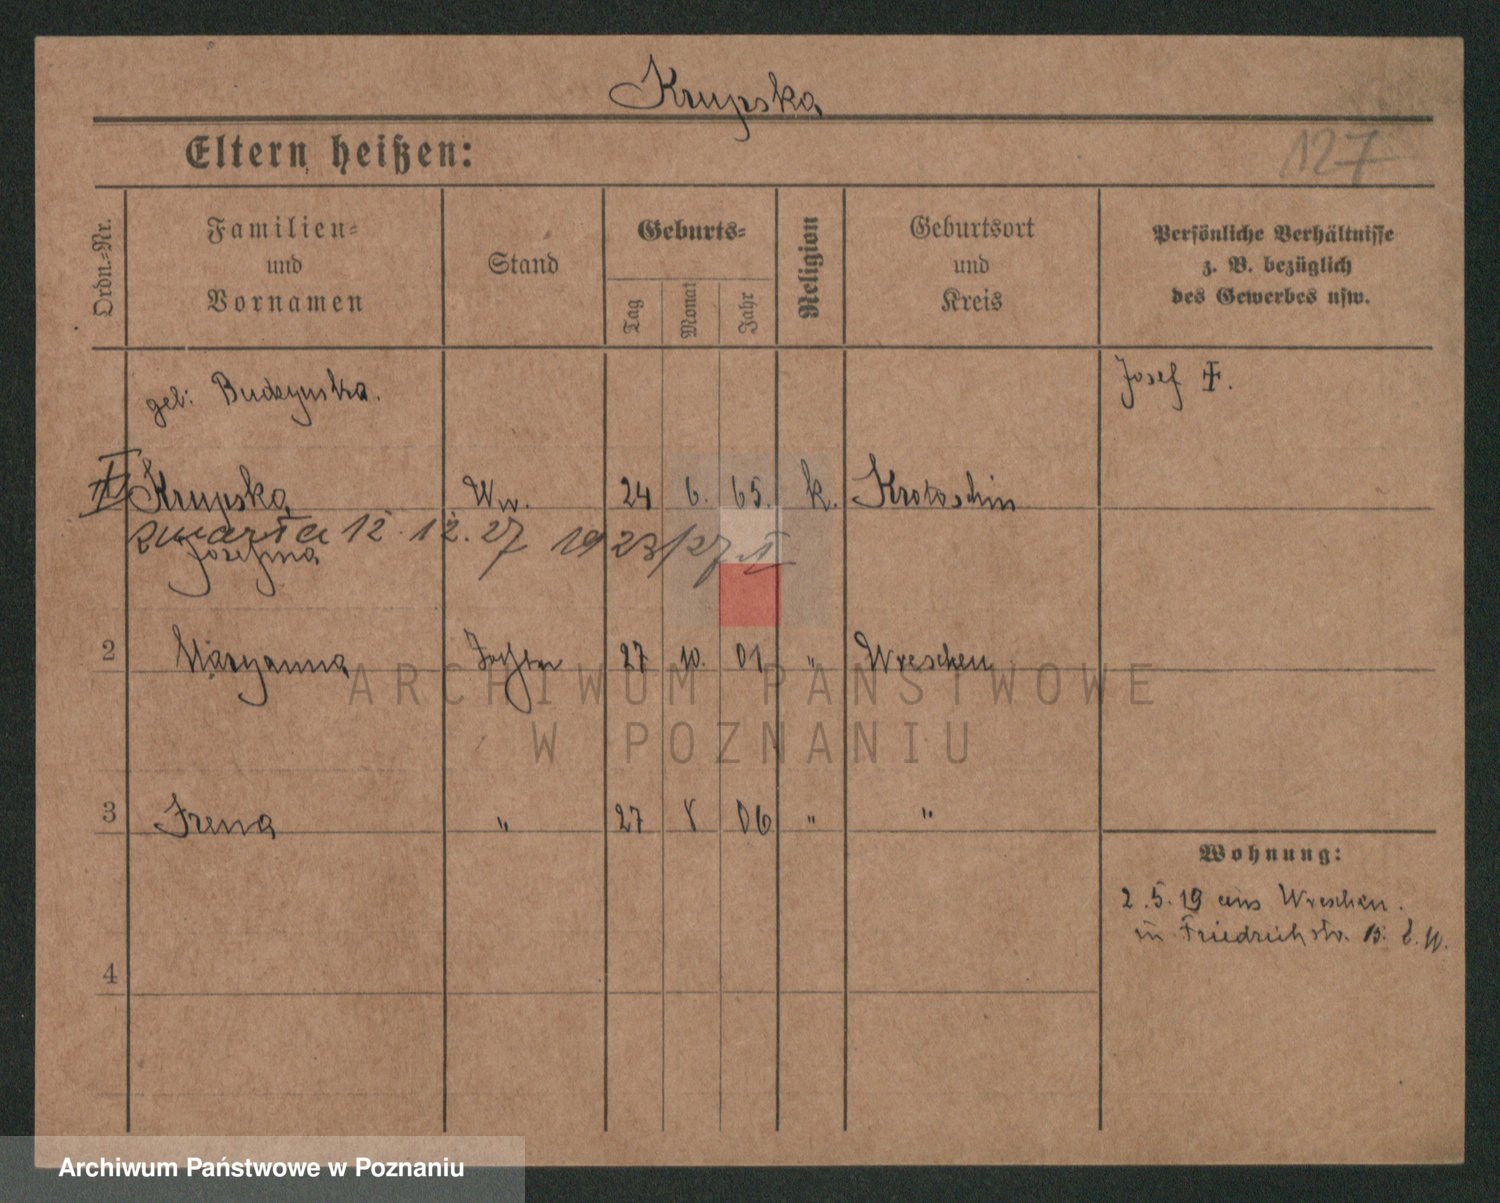 Krupska
127
Eltern heißen:
Ordn.-Nr.
Familien-
und
Vornamen
Stand
Geburts-
Tag
Monat
Jahr
Religion
Geburtsort
und
Kreis
Persönliche Verhältnisse
z. B. bezüglich
des Gewerbes usw.
geb: Budzynska.
Josef †.
Krupska Ww. 24 6. 65. k. Krotoschin
zmarła 12.12.27 1923/27
Josefina
2 Maryanna Tochter 27 10. 01 " Wreschen
ARCHIWUM PAŃSTWOWE
W POZNANIU
3 Irena " 27 8 06 " "
Wohnung:
2.5.19 aus Wreschen.
in Friedrichstr. 13.
4
Archiwum Państwowe w Poznaniu